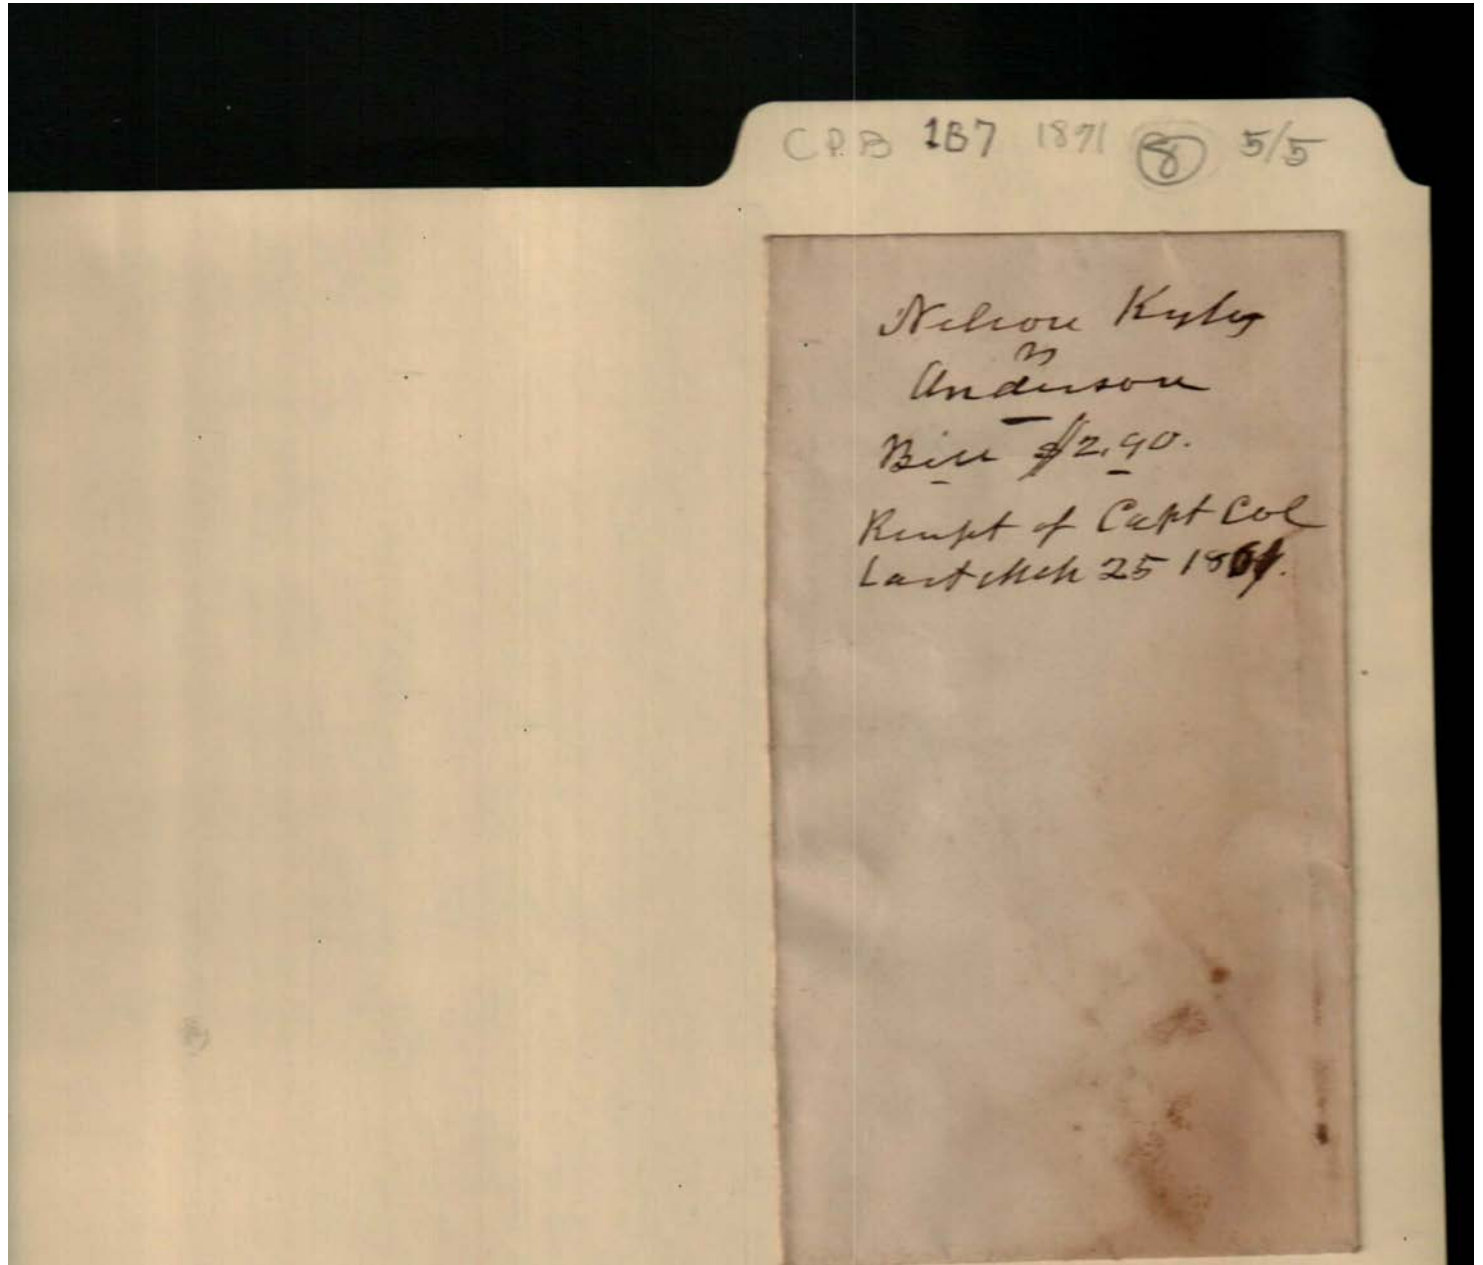 C P. B 1B7 1871 8 5/5
Nelson Kyley
vs
Anderson
Bill $2,90.
Receipt of Capt Col
Last Mch 25 18